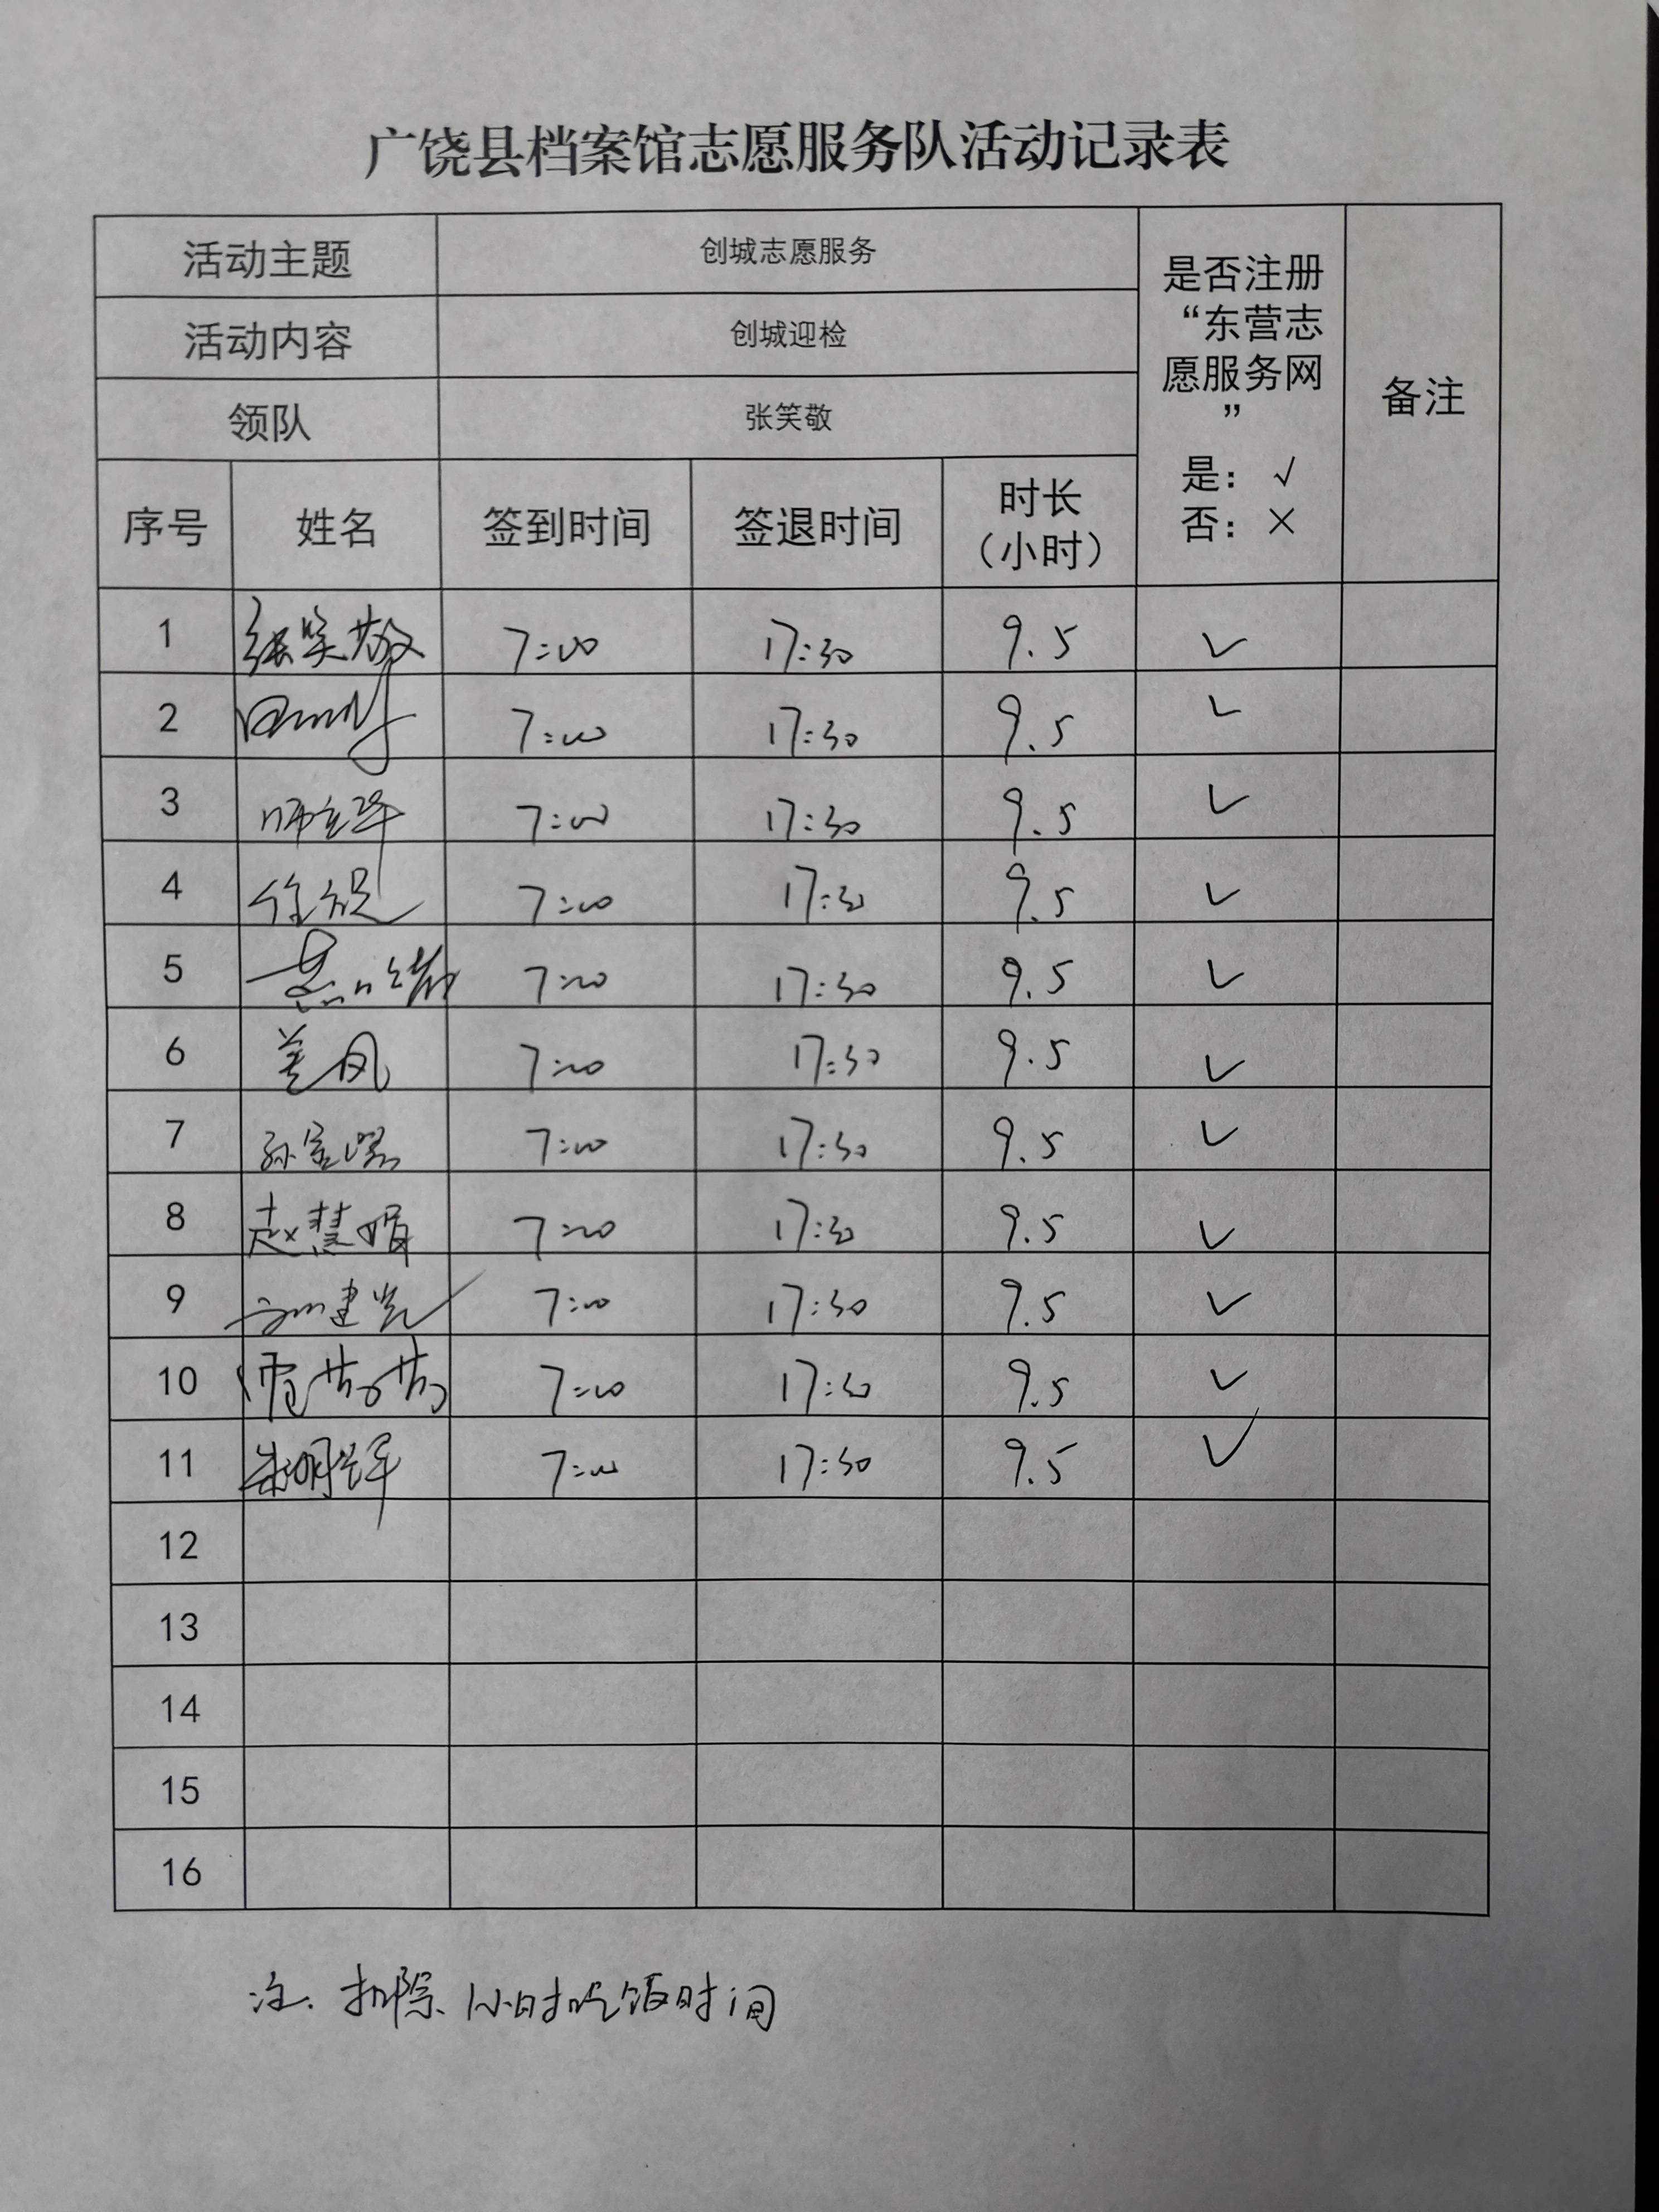 广饶县档案馆志愿服务队活动记录表
活动主题 创城志愿服务 是否注册“东营志愿服务网” 是：√ 否：× 备注
活动内容 创城迎检
领队 张笑敬
序号 姓名 签到时间 签退时间 时长（小时）
1 张笑敬 7:00 17:30 9.5 ✓
2 7:00 17:30 9.5 ✓
3 7:00 17:30 9.5 ✓
4 7:00 17:30 9.5 ✓
5 7:00 17:30 9.5 ✓
6 7:00 17:30 9.5 ✓
7 7:00 17:30 9.5 ✓
8 赵慧娟 7:00 17:30 9.5 ✓
9 7:00 17:30 9.5 ✓
10 7:00 17:30 9.5 ✓
11 7:00 17:30 9.5 ✓
12
13
14
15
16
注. 扣除1小时吃饭时间